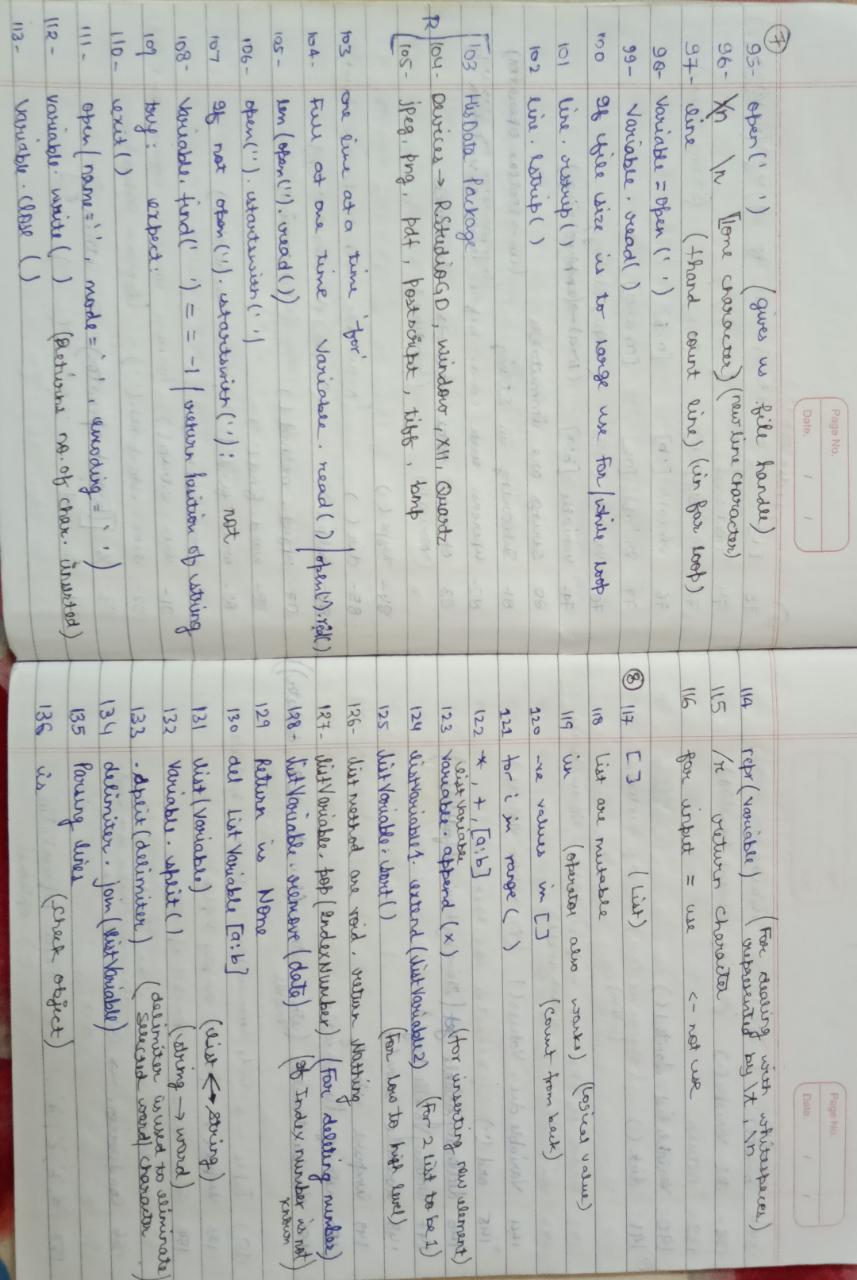 Page No.
Date. / /
⑦
95- open(' ') (gives us file handle)
96- \n [1 one character) (new line character)
97- line (thand count line) (in for loop)
98- Variable = open(' ')
99- Variable. read()
100 If file size is to large use for/while loop
101 line. rstrip()
102 line. lstrip()
R
103 HisData Package
104- Devices → RStudioGD, window, X11, Quartz
105- jpeg, png, pdf, postscript, tiff, bmp
103 one line at a time 'for'
104- Full at one time Variable. read() / open('').read()
105- len(open(''). read())
106- open(''). startswith(' ')
107 If not open(''). startswith(''): not
108- Variable. find(' ') == -1 / return position of string
109 try: expect:
110- exit()
111- open(name='', mode='', encoding='')
112- Variable. write( ) (Returns no. of char. inserted)
113- Variable. close ( )
Page No.
Date. / /
114 repr(variable) (For dealing with whitespaces)
represented by \t, \n
115 /r return character
116 for input = use <- not use
⑧ 117 [ ] (List)
118 List are mutable
119 in (operator also works) (logical value)
120 -ve values in [ ] (count from back)
121 for i in range( )
122 *, +, [a:b]
listVariable
123 Variable. append (x) (for inserting new element)
124 listVariable1. extend(listVariable2) (For 2 list to be 1)
125 listVariable. sort() (For low to high level)
126- list method are void, return Nothing
127- listVariable. pop(IndexNumber) (For deleting number)
128- listVariable. remove (data) (If Index number is not known
129 Return is None
130 del listVariable [a:b]
131 list(Variable) (list <-> string)
132 Variable. split() (string → word)
133 . split(delimiter) (delimiter is used to eliminate selected word/character)
134 delimiter. join(listVariable)
135 Parsing lines
136 is (check object)